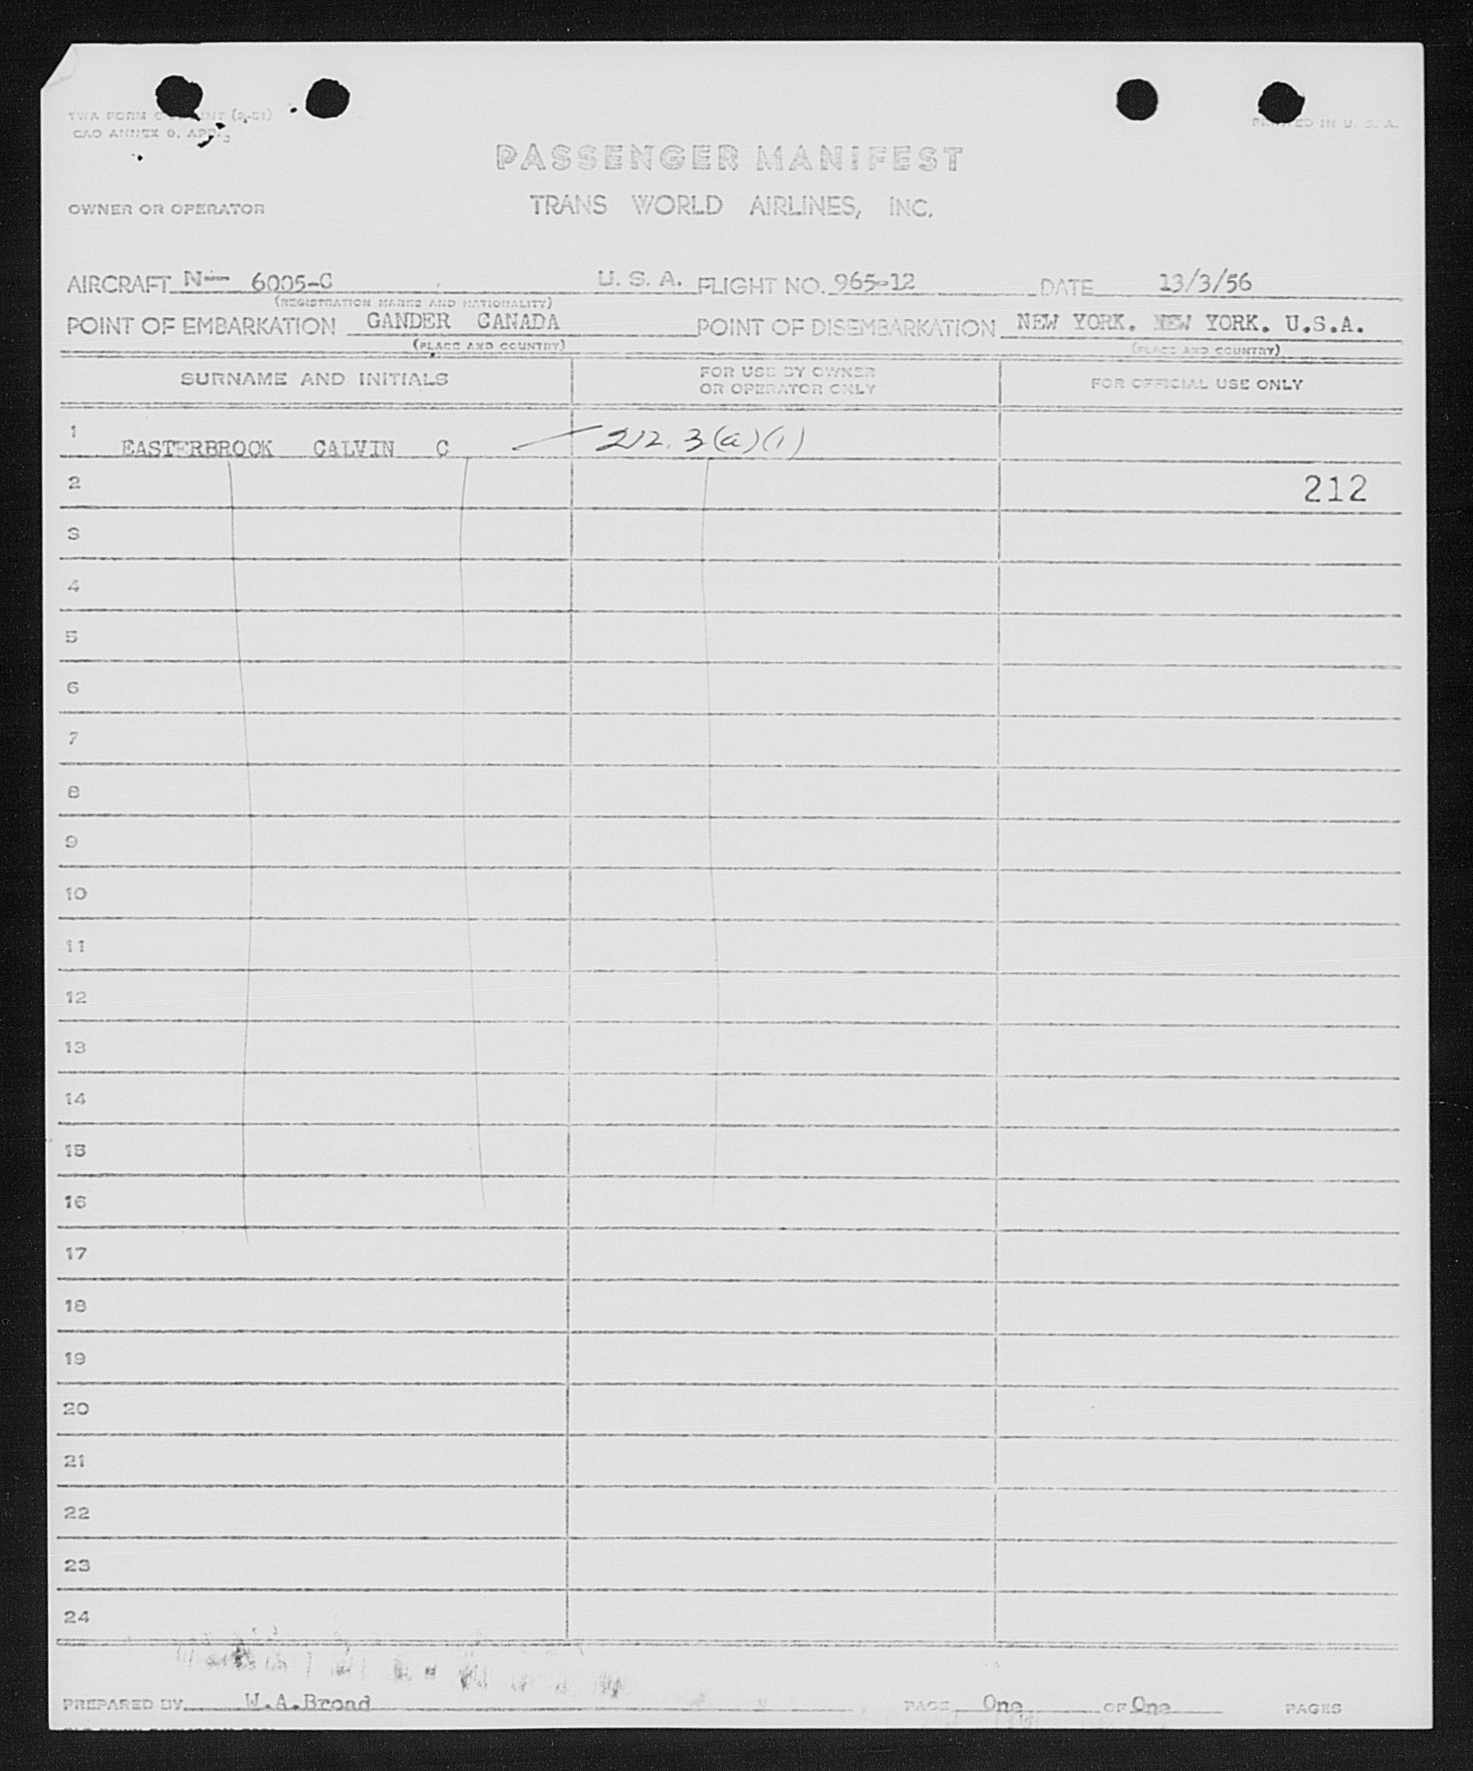 TWA FORM
PRINTED IN U. S. A.
PASSENGER MANIFEST
OWNER OR OPERATOR TRANS WORLD AIRLINES, INC.
AIRCRAFT N- 6005-C U. S. A. FLIGHT NO. 965-12 DATE 13/3/56
(REGISTRATION MARKS AND NATIONALITY)
POINT OF EMBARKATION GANDER CANADA POINT OF DISEMBARKATION NEW YORK. NEW YORK. U.S.A.
(PLACE AND COUNTRY) (PLACE AND COUNTRY)
SURNAME AND INITIALS FOR USE BY OWNER OR OPERATOR ONLY FOR OFFICIAL USE ONLY
1 EASTERBROOK CALVIN C 212.3(a)(1)
2 212
3
4
5
6
7
8
9
10
11
12
13
14
15
16
17
18
19
20
21
22
23
24
PREPARED BY W.A.Broad PAGE One OF One PAGES